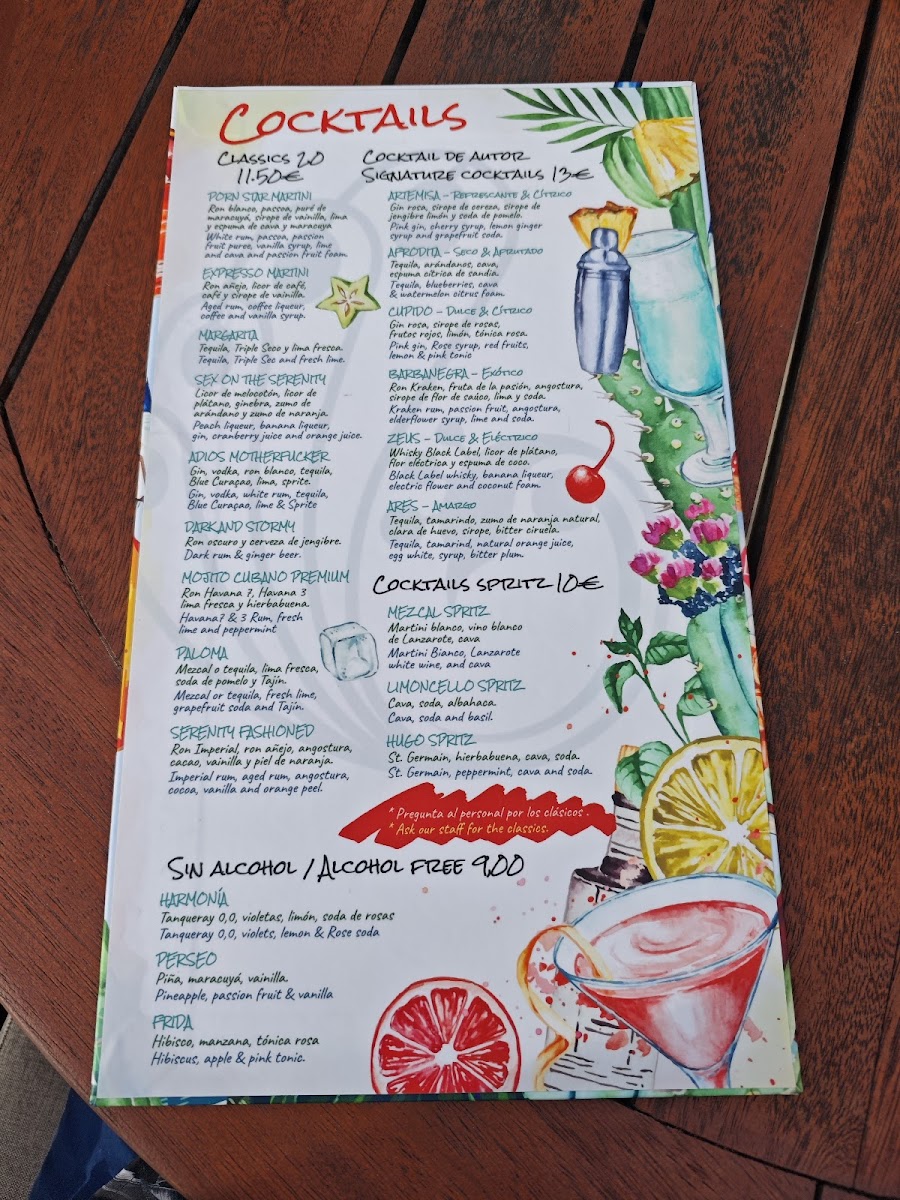 Cocktails
Classics 2.0
11.50€
PORN STAR MARTINI
Ron blanco, passoa, puré de
maracuyá, sirope de vainilla, lima
y espuma de cava y maracuya
White rum, passoa, passion
fruit puree, vanilla syrup, lime
and cava and passion fruit foam.
EXPRESSO MARTINI
Ron añejo, licor de café,
café y sirope de vainilla.
Aged rum, coffee liqueur,
coffee and vanilla syrup.
MARGARITA
Tequila, Triple Seco y lima fresca.
Tequila, Triple Sec and fresh lime.
SEX ON THE SERENITY
Licor de melocotón, licor de
plátano, ginebra, zumo de
arándano y zumo de naranja.
Peach liqueur, banana liqueur,
gin, cranberry juice and orange juice.
ADIOS MOTHERFUCKER
Gin, vodka, ron blanco, tequila,
Blue Curaçao, lima, sprite.
Gin, vodka, white rum, tequila,
Blue Curaçao, lime & Sprite
DARKAND STORMY
Ron oscuro y cerveza de jengibre.
Dark rum & ginger beer.
MOJITO CUBANO PREMIUM
Ron Havana 7, Havana 3
lima fresca y hierbabuena.
Havana7 & 3 Rum, fresh
lime and peppermint
PALOMA
Mezcal o tequila, lima fresca,
soda de pomelo y Tajín.
Mezcal or tequila, fresh lime,
grapefruit soda and Tajín.
SERENITY FASHIONED
Ron Imperial, ron añejo, angostura,
cacao, vainilla y piel de naranja.
Imperial rum, aged rum, angostura,
cocoa, vanilla and orange peel.
Cocktail de autor
Signature cocktails 13€
ARTEMISA – Refrescante & Cítrico
Gin rosa, sirope de cereza, sirope de
jengibre limón y soda de pomelo.
Pink gin, cherry syrup, lemon ginger
syrup and grapefruit soda.
AFRODITA – Seco & Afrutado
Tequila, arándanos, cava,
espuma cítrica de sandia.
Tequila, blueberries, cava
& watermelon citrus foam.
CUPIDO – Dulce & Cítrico
Gin rosa, sirope de rosas,
frutos rojos, limón, tónica rosa.
Pink gin, Rose syrup, red fruits,
lemon & pink tonic
BARBANEGRA – Exótico
Ron Kraken, fruta de la pasión, angostura,
sirope de flor de saúco, lima y soda.
Kraken rum, passion fruit, angostura,
elderflower syrup, lime and soda.
ZEUS – Dulce & Eléctrico
Whisky Black Label, licor de plátano,
flor eléctrica y espuma de coco.
Black Label whisky, banana liqueur,
electric flower and coconut foam.
ARES – Amargo
Tequila, tamarindo, zumo de naranja natural,
clara de huevo, sirope, bitter ciruela.
Tequila, tamarind, natural orange juice,
egg white, syrup, bitter plum.
Cocktails spritz 10€
MEZCAL SPRITZ
Martini blanco, vino blanco
de Lanzarote, cava
Martini Bianco, Lanzarote
white wine, and cava
LIMONCELLO SPRITZ
Cava, soda, albahaca.
Cava, soda and basil.
HUGO SPRITZ
St. Germain, hierbabuena, cava, soda.
St. Germain, peppermint, cava and soda.
* Pregunta al personal por los clásicos .
* Ask our staff for the classics.
Sin alcohol / Alcohol free 9,00
HARMONÍA
Tanqueray 0,0, violetas, limón, soda de rosas
Tanqueray 0,0, violets, lemon & Rose soda
PERSEO
Piña, maracuyá, vainilla.
Pineapple, passion fruit & vanilla
FRIDA
Hibisco, manzana, tónica rosa
Hibiscus, apple & pink tonic.